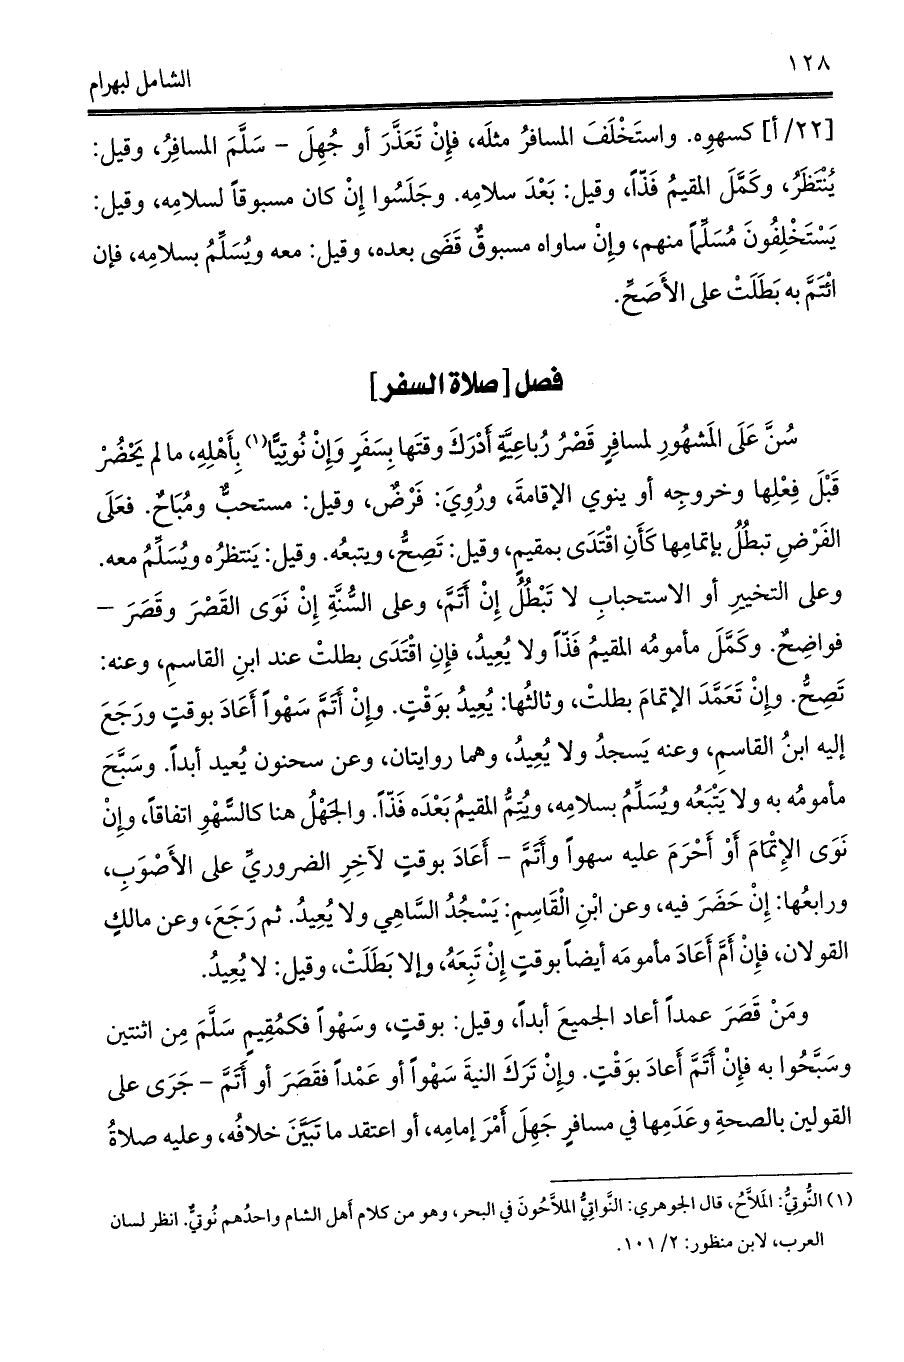 ١٢٨
الشامل لبهرام
[٢٢/أ] كسهوِه. واستَخْلَفَ المسافرُ مثلَه، فإِنْ تَعَذَّرَ أو جُهِلَ – سَلَّمَ المسافِرُ، وقيل:
يُنْتَظَرُ، وكَمَّلَ المقيمُ فَذّاً، وقيل: بَعْدَ سلامِه. وجَلَسُوا إِنْ كان مسبوقاً لسلامِه، وقيل:
يَسْتَخْلِفُونَ مُسَلِّماً منهم، وإِنْ ساواه مسبوقٌ قَضَى بعده، وقيل: معه ويُسَلِّمُ بسلامِه، فإن
ائْتَمَّ به بَطَلَتْ على الأَصَحِّ.
فصل [صلاة السفر]
سُنَّ عَلَى المَشهُورِ لمسافرٍ قَصْرُ رُباعِيَّةٍ أَدْرَكَ وقتَها بِسَفَرٍ وَإِنْ نُوتِيًّا(١) بِأَهْلِهِ، ما لم يَحْضُرْ
قَبْلَ فِعْلِها وخروجِه أو ينوي الإقامةَ، ورُوِيَ: فَرْضٌ، وقيل: مستحبٌّ ومُبَاحٌ. فعَلَى
الفَرْضِ تبطُلُ بإتمامِها كَأَنِ اقْتَدَى بمقيمٍ، وقيل: تَصِحُّ، ويتبعُه. وقيل: يَنتظرُه ويُسَلِّمُ معه.
وعلى التخييرِ أو الاستحبابِ لا تَبْطُلُ إِنْ أَتَمَّ، وعلى السُّنَّةِ إِنْ نَوَى القَصْرَ وقَصَرَ –
فواضِحٌ. وكَمَّلَ مأمومُه المقيمُ فَذّاً ولا يُعِيدُ، فإِنِ اقْتَدَى بطلتْ عند ابنِ القاسمِ، وعنه:
تَصِحُّ. وإِنْ تَعَمَّدَ الإتمامَ بطلتْ، وثالثُها: يُعِيدُ بوَقْتٍ. وإِنْ أَتَمَّ سَهْواً أَعَادَ بوقتٍ ورَجَعَ
إليه ابنُ القاسمِ، وعنه يَسجدُ ولا يُعِيدُ، وهما روايتان، وعن سحنون يُعيد أبداً. وسَبَّحَ
مأمومُه به ولا يَتْبَعُه ويُسَلِّمُ بسلامِه، ويُتِمُّ المقيمُ بَعْدَه فَذّاً. والجَهْلُ هنا كالسَّهْوِ اتفاقاً، وإِنْ
نَوَى الإِتْمَامَ أَوْ أَحْرَمَ عليه سهواً وأَتَمَّ – أَعَادَ بوقتٍ لآخِرِ الضروريِّ على الأَصْوَبِ،
ورابعُها: إِنْ حَضَرَ فيه، وعن ابْنِ الْقَاسِمِ: يَسْجُدُ السَّاهِي ولا يُعِيدُ. ثم رَجَعَ، وعن مالكٍ
القولان، فإِنْ أَمَّ أَعَادَ مأمومَه أيضاً بوقتٍ إِنْ تَبِعَهُ، وإلا بَطَلَتْ، وقيل: لا يُعِيدُ.
ومَنْ قَصَرَ عمداً أعاد الجميعَ أبداً، وقيل: بوقتٍ، وسَهْواً فكمُقِيمٍ سَلَّمَ مِن اثنتين
وسَبَّحُوا به فإِنْ أَتَمَّ أَعَادَ بوَقْتٍ. وإِنْ تَرَكَ النيةَ سَهْواً أو عَمْداً فقَصَرَ أو أَتَمَّ – جَرَى على
القولين بالصحةِ وعَدَمِها في مسافرٍ جَهِلَ أَمْرَ إمامِه، أو اعتقد ما تَبَيَّنَ خلافُه، وعليه صلاةُ
(١) النُّوتِيُّ: المَلاَّحُ، قال الجوهري: النَّواتِيُّ الملاَّحُونَ في البحر، وهو من كلام أَهل الشام واحدُهم نُوتيٌّ. انظر لسان
العرب، لابن منظور: ٢/ ١٠١.